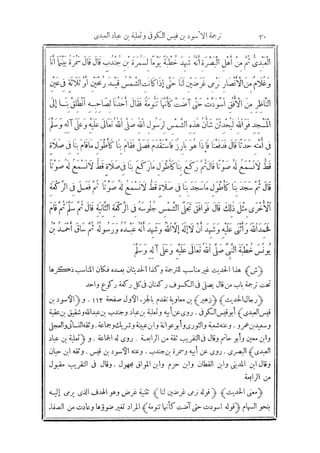 ٣٠ ترجمة الأسود بن قيس الكوفى وثعلبة بن عباد العبدى
العبدى ثم من أهل البصرة أنه شهد خطبة يوما لسمرة بن جندب قال قال سمرة بينما أنا
وغلام من الأنصار نرمى غرضين لنا حتى إذا كانت الشمس قيد رمحين أو ثلاثة فى عين
الناظر من الأفق اسودت حتى آضت كأنها تنومة فقال أحدنا لصاحبه انطلق بنا إلى
المسجد فوالله ليحدثن شأن هذه الشمس لرسول الله صلى الله تعالى عليه وعلى آله وسلم
فى أمته حدثا قال فدفعنا فإذا هو بارز فاستقدم فصلى فقام بنا كأطول ما قام بنا فى صلاة
قط لا نسمع له صوتا قال ثم ركع بنا كأطول ما ركع بنا فى صلاة قط لا نسمع له صوتا
قال ثم سجد بنا كأطول ما سجد بنا فى صلاة قط لا نسمع له صوتا ثم فعل فى الركعة
الأخرى مثل ذلك قال فوافق تجلى الشمس جلوسه فى الركعة الثانية قال ثم سلم ثم قام
فحمد الله وأثنى عليه وشهد أن لا إله إلا الله وشهد أنه عبده ورسوله ثم ساق أحمد بن
يونس خطبة النبى صلى الله تعالى عليه وعلى آله وسلم
﴿ش﴾ هذا الحديث غير مناسب للترجمة وكذا الحديثان بعده فكان المناسب ذكرها
تحت ترجمة باب من قال يصلى فى الكسوف ركعتان فى كل ركعة ركوع واحد
﴿رجال الحديث﴾ ﴿زهير﴾ بن معاوية تقدم بالجزء الأول صفحة ١١٢. و﴿الأسود بن
قيس العبدى﴾ أبو قيس الكوفى. روى عن أبيه وثعلبة بن عباد وجندب بن عبد الله وشقيق بن عقبة
وسعيد بن عمرو. وعنه شعبة والثورى وأبو عوانة وابن عيينة وشريك وجماعة. وثقه النسائى والعجلى
وابن معين وأبو حاتم وقال فى التقريب ثقة من الرابعة. روى له الجماعة. و﴿ثعلبة بن عباد
العبدى﴾ البصرى. روى عن أبيه وسمرة بن جندب. وعنه الأسود بن قيس. وثقه ابن حبان
وقال ابن المدينى وابن القطان وابن حزم وابن المواق مجهول. وقال فى التقريب مقبول
من الرابعة
﴿معنى الحديث﴾ ﴿قوله نرمى غرضين لنا﴾ تثنية غرض وهو الهدف الذى يرمى إليه
بنحو السهام ﴿قوله اسودت حتى آضت كأنها تنومة﴾ المراد تغير ضوؤها وعادت من الصفاء